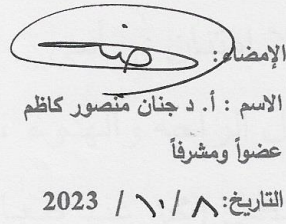 الإمضاء:
الاسم : أ. د جنان منصور كاظم
عضواً ومشرفاً
التاريخ: ٨ / ١٠ / 2023